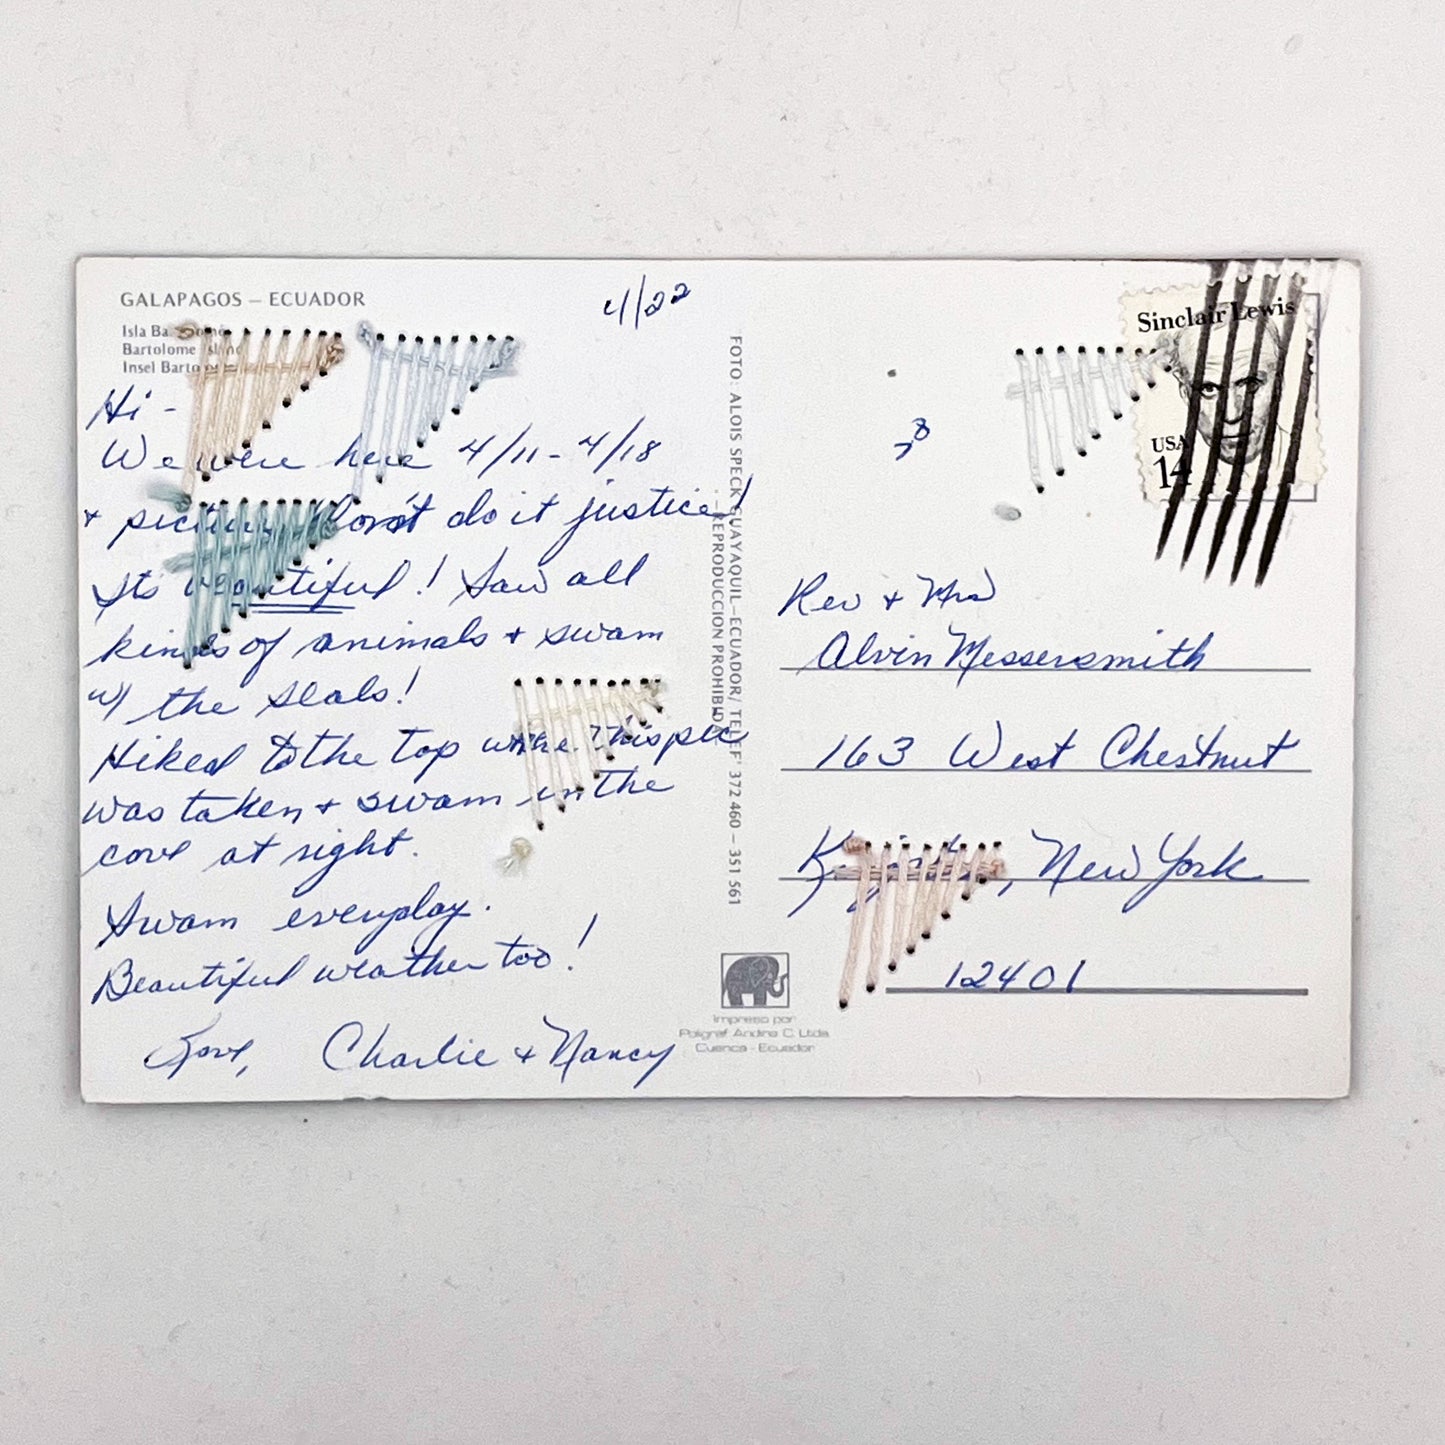 GALAPAGOS – ECUADOR
Isla Ba
Bartolome
Insel Barto
4/22
Hi -
We were here 4/11 - 4/18
+ don't do it justice!
Its beautiful! Saw all
kinds of animals + swam
w/ the seals!
Hiked to the top where this pic
was taken + swam in the
cove at right.
Swam everyday.
Beautiful weather too!
Love, Charlie + Nancy
FOTO: ALOIS SPECK GUAYAQUIL–ECUADOR/ TELEF' 372 460 – 351 561
REPRODUCCION PROHIBIDA
Impreso por
Poligraf Andina C. Ltda
Cuenca - Ecuador
Sinclair Lewis
USA
14
Rev + Mrs
Alvin Messersmith
163 West Chestnut
New York
12401